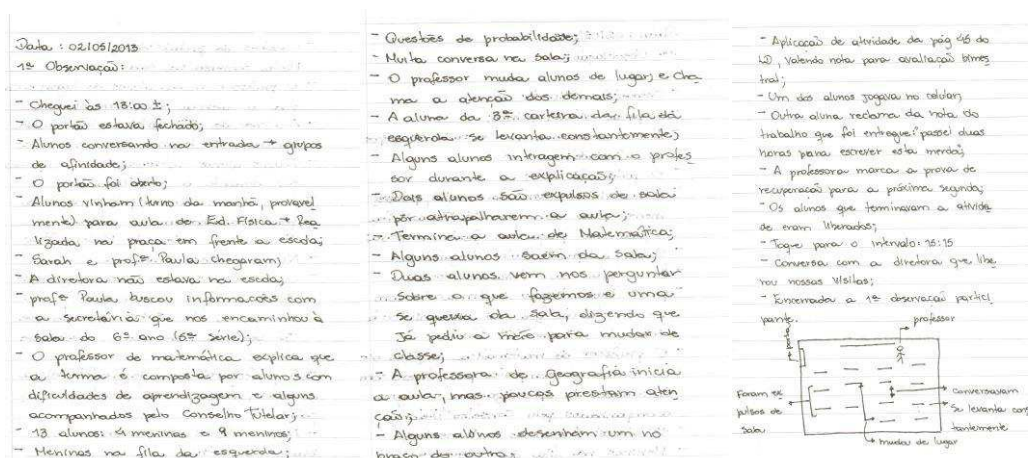 Data: 02/05/2013
1ª Observação:
- Cheguei às 13:00 ±;
- O portão estava fechado;
- Alunos conversando na entrada → grupos
de afinidade;
- O portão foi aberto;
- Alunos vinham (turno da manhã, provavel
mente) para aula de Ed. Física → Rea
lizada na praça em frente a escola;
- Sarah e profª Paula chegaram;
- A diretora não estava na escola;
- profª Paula buscou informações com
a secretária que nos encaminhou à
sala do 6º ano (5ª série);
- O professor de matemática explica que
a turma é composta por alunos com
dificuldades de aprendizagem e alguns
acompanhados pelo Conselho Tutelar;
- 13 alunos: 4 meninas e 9 meninos;
- Meninas na fila da esquerda;
- Questões de probabilidade;
- Muita conversa na sala;
- O professor muda alunos de lugar, e cha
ma a atenção dos demais;
- A aluna da 3ª carteira da fila da
esquerda se levanta constantemente;
- Alguns alunos interagem com o profes
sor durante a explicação;
- Dois alunos são expulsos de sala
por atrapalharem a aula;
- Termina a aula de Matemática;
- Alguns alunos saem da sala;
- Duas alunas vem nos perguntar
sobre o que fazemos e uma
se queixa da sala, dizendo que
já pediu a mãe para mudar de
classe;
- A professora de Geografia inicia
a aula, mas poucos prestam aten
ção;
- Alguns alunos desenham um no
braço do outro;
- Aplicação de atividade da pág 45 do
LD, valendo nota para avaliação bimes
tral;
- Um dos alunos jogava no celular;
- Outra aluna reclama da nota do
trabalho que foi entregue: "passei duas
horas para escrever esta merda;
- A professora marca a prova de
recuperação para a próxima segunda;
- Os alunos que terminavam a ativida
de eram liberados;
- Toque para o intervalo: 15:15
- Conversa com a diretora que libe
rou nossas visitas;
- Encerrada a 1ª observação partici
pante.
professor
porta
Foram ex
pulsos de
sala
conversavam
se levanta cons
tantemente
mudou de lugar